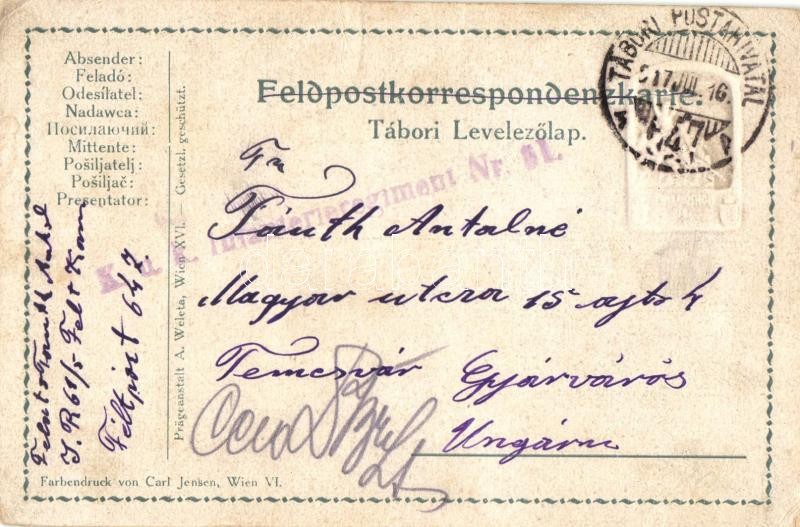 Absender:
Feladó:
Odesílatel:
Nadawca:
Посилаючий:
Mittente:
Pošiljatelj:
Pošiljač:
Presentator:
Feldpostkorrespondenzkarte.
Tábori Levelezőlap.
TÁBORI POSTAHIVATAL
917 JUL. 16.
647
K. u. k. Infanterieregiment Nr. 61.
Fáuth Antalné
Magyar utcza 15 ajto 4
Temesvár Gyárváros
Ungárn
J. R 61/5 Feld Kom
Feltpost 647
Prägeanstalt A. Weleta, Wien XVI. — Gesetzl. geschützt.
Farbendruck von Carl Jensen, Wien VI.